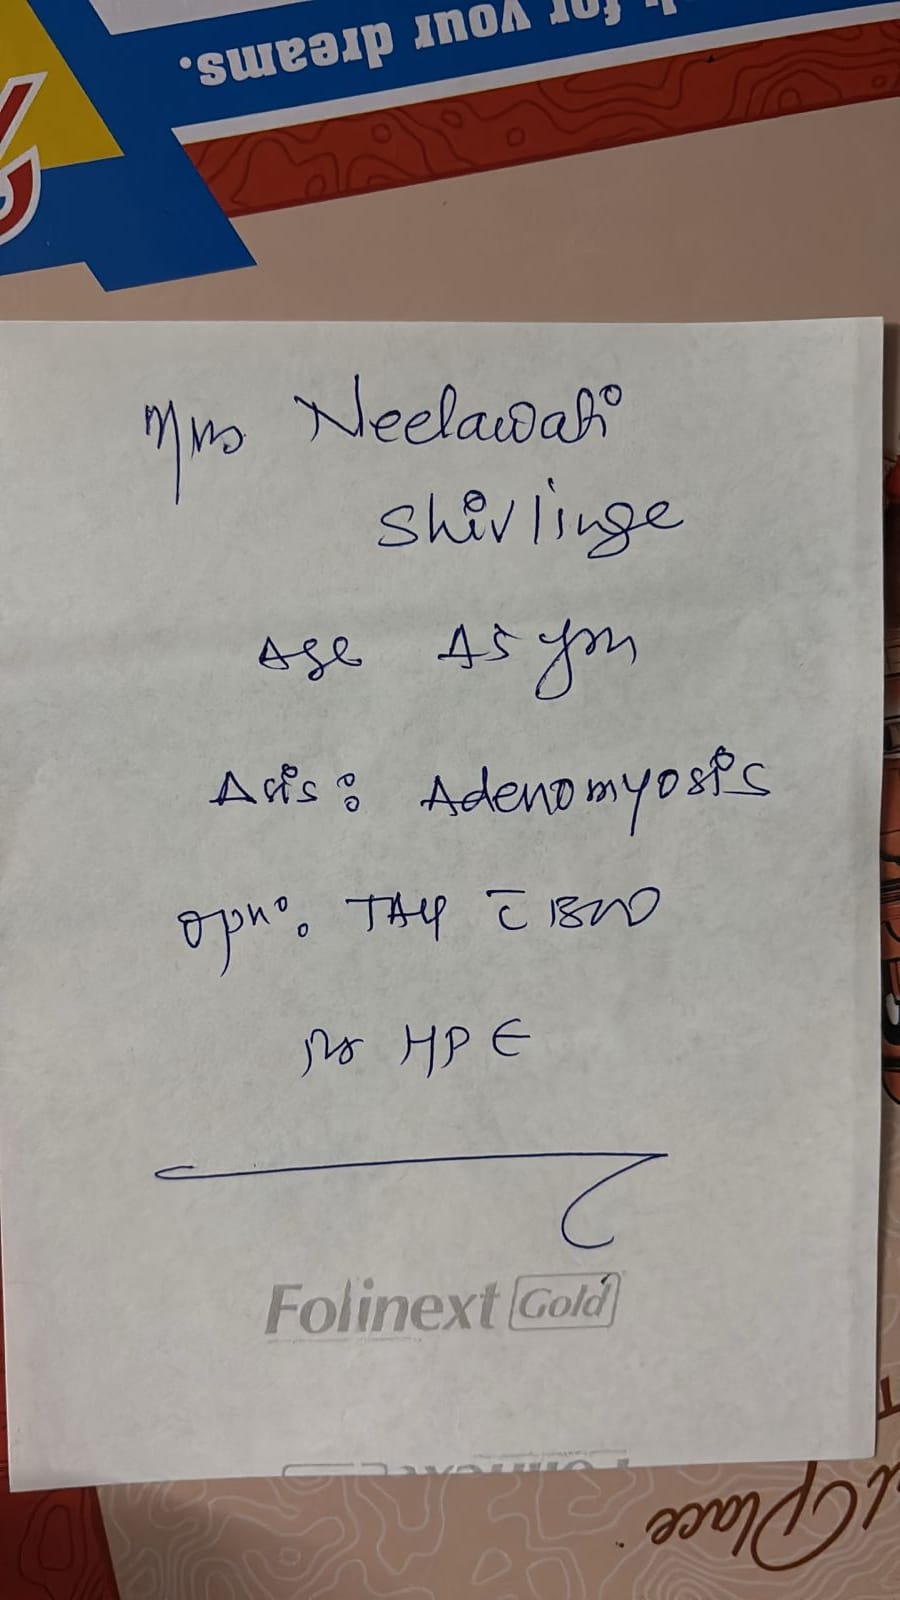 k for your dreams.
Mrs Neelawati
Shivlinge
Age 45 yrs
Adenomyosis
Opn: TAH c̄ BSO
for HPE
Folinext Gold
Folinext
Place